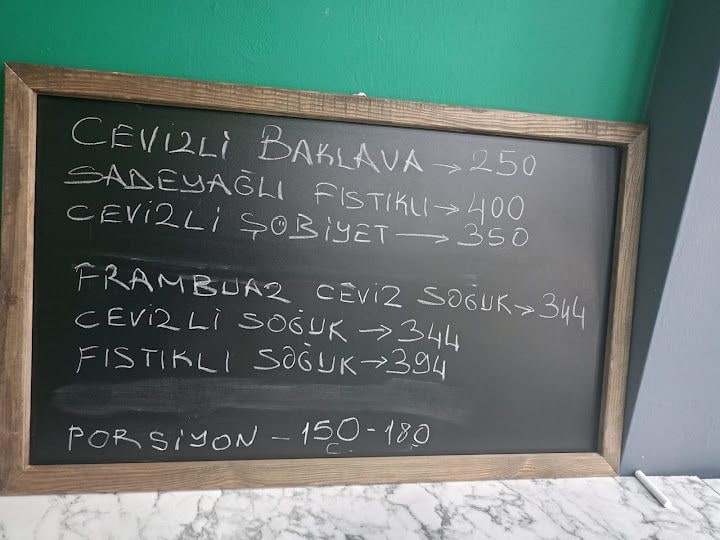 CEVİZLİ BAKLAVA → 250
SADEYAĞLI FISTIKLI → 400
CEVİZLİ ŞÖBİYET → 350
FRAMBUAZ CEVİZ SOĞUK → 344
CEVİZLİ SOĞUK → 344
FISTIKLI SOĞUK → 394
PORSİYON - 150 - 180